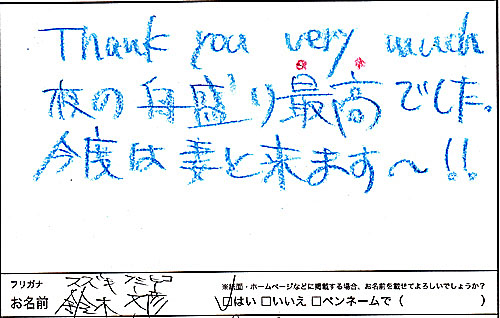 Thank you very much
夜の舟盛り最高でした。
今度は妻と来ます〜!!
フリガナ スズキ フミヒコ
お名前 鈴木 文彦
※紙面・ホームページなどに掲載する場合、お名前を載せてよろしいでしょうか?
☑はい □いいえ □ペンネームで( )